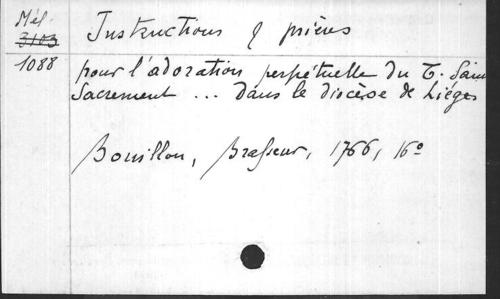 Mél.
3103
1088
Instructions & prières
pour l'adoration perpétuelle du T. Saint
Sacrement ... dans le diocèse de Liége
Bouillon, Brasseur, 1766, 16º